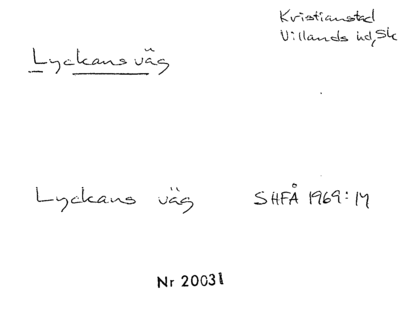 Kristianstad
Villands hd, Sk
Lyckans väg
Lyckans väg SHFÅ 1969:14
Nr 20031